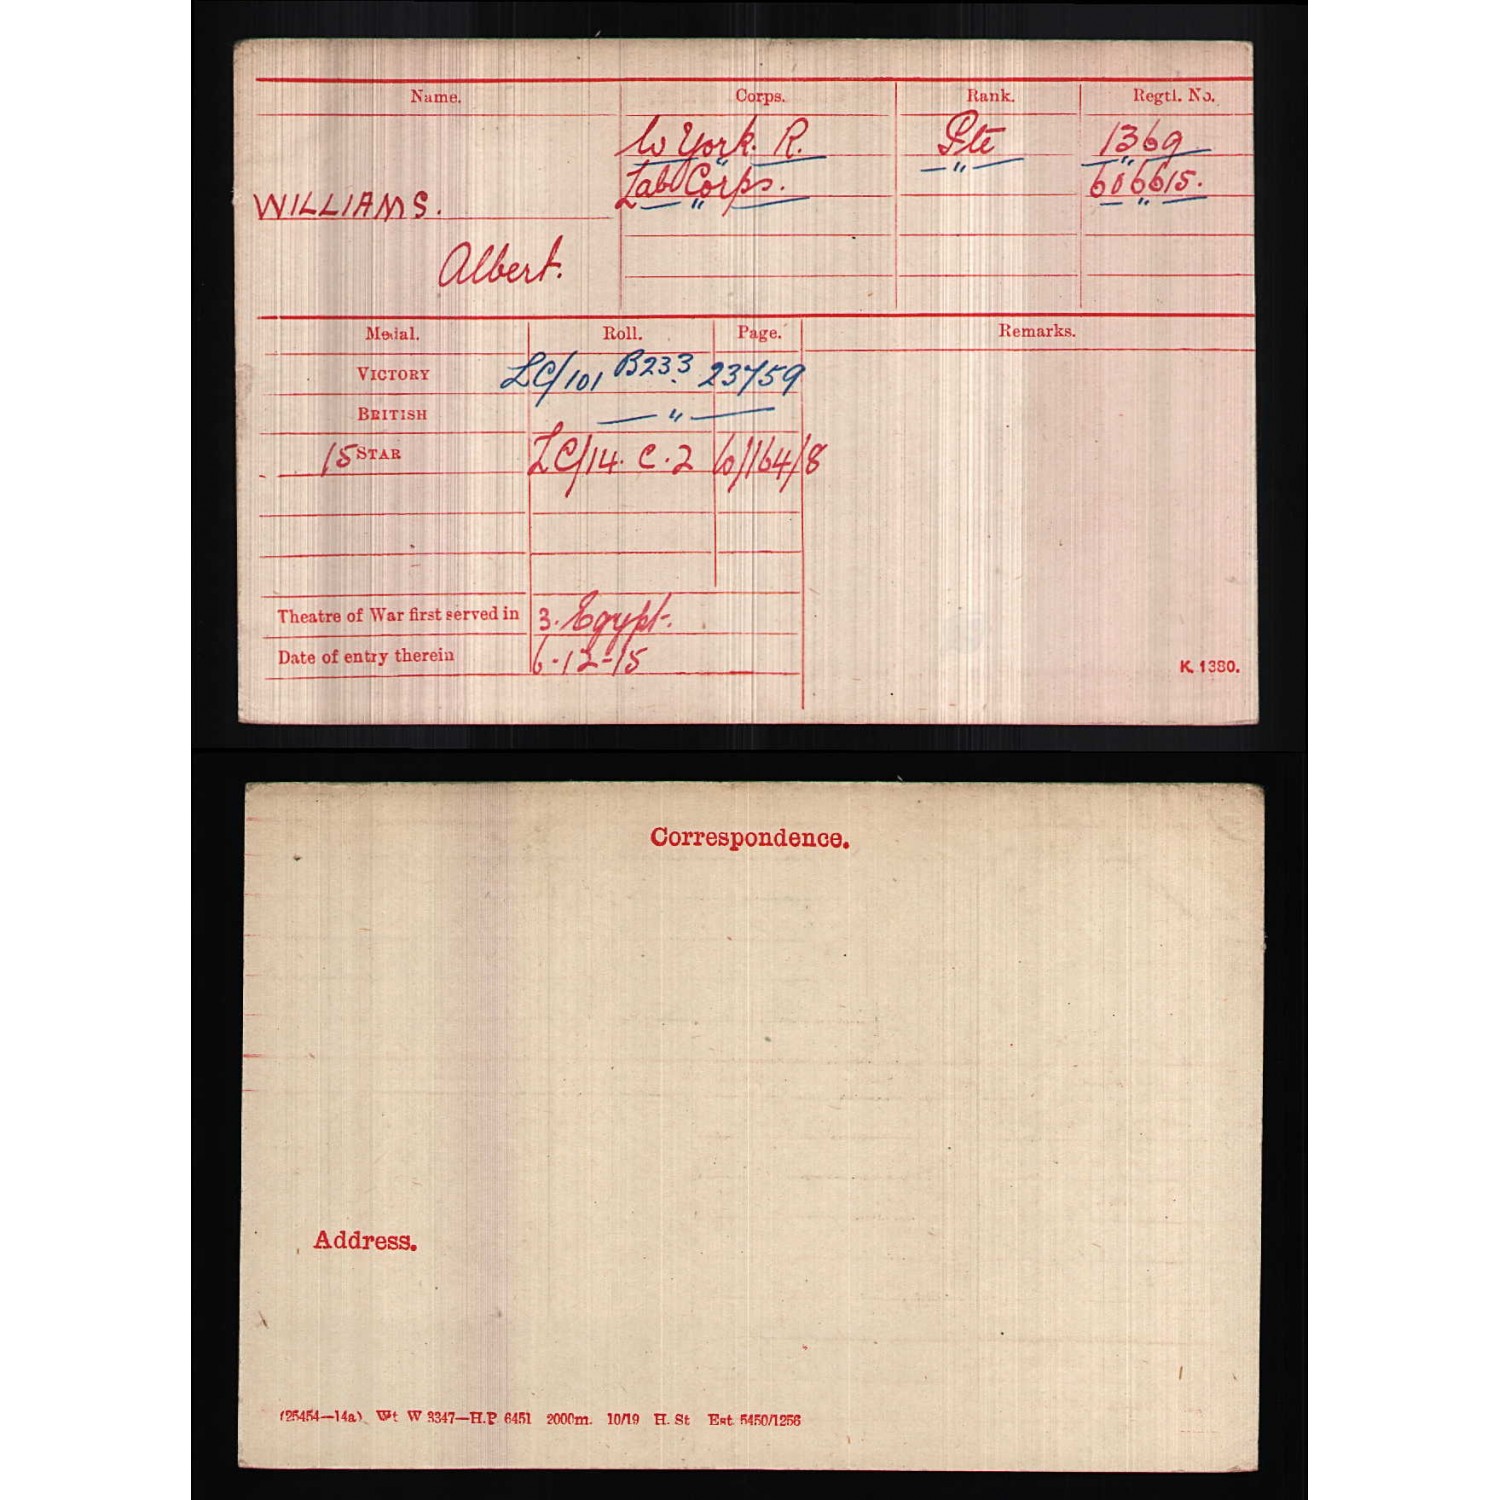 Name. Corps. Rank. Regtl. No.
W York. R. Pte 1369
Lab Corps. — " — 606615.
WILLIAMS. — " — — " —
Albert.
Medal. Roll. Page. Remarks.
VICTORY LC/101 B233 23759
BRITISH — " —
15 STAR LC/14. C.2 10/164/8
Theatre of War first served in 3. Egypt.
Date of entry therein 6-12-15
K. 1380.
Correspondence.
Address.
(25454—14a) Wt W 3347—H.P 6451 2000m. 10/19 H. St Est. 5450/1256